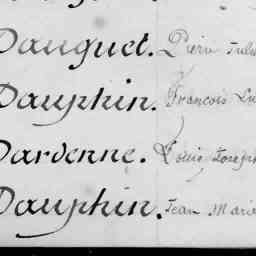 Dauguet. Pierre Jules
Dauphin. François Lu
Dardenne. Louis Joseph
Dauphin. Jean Marie